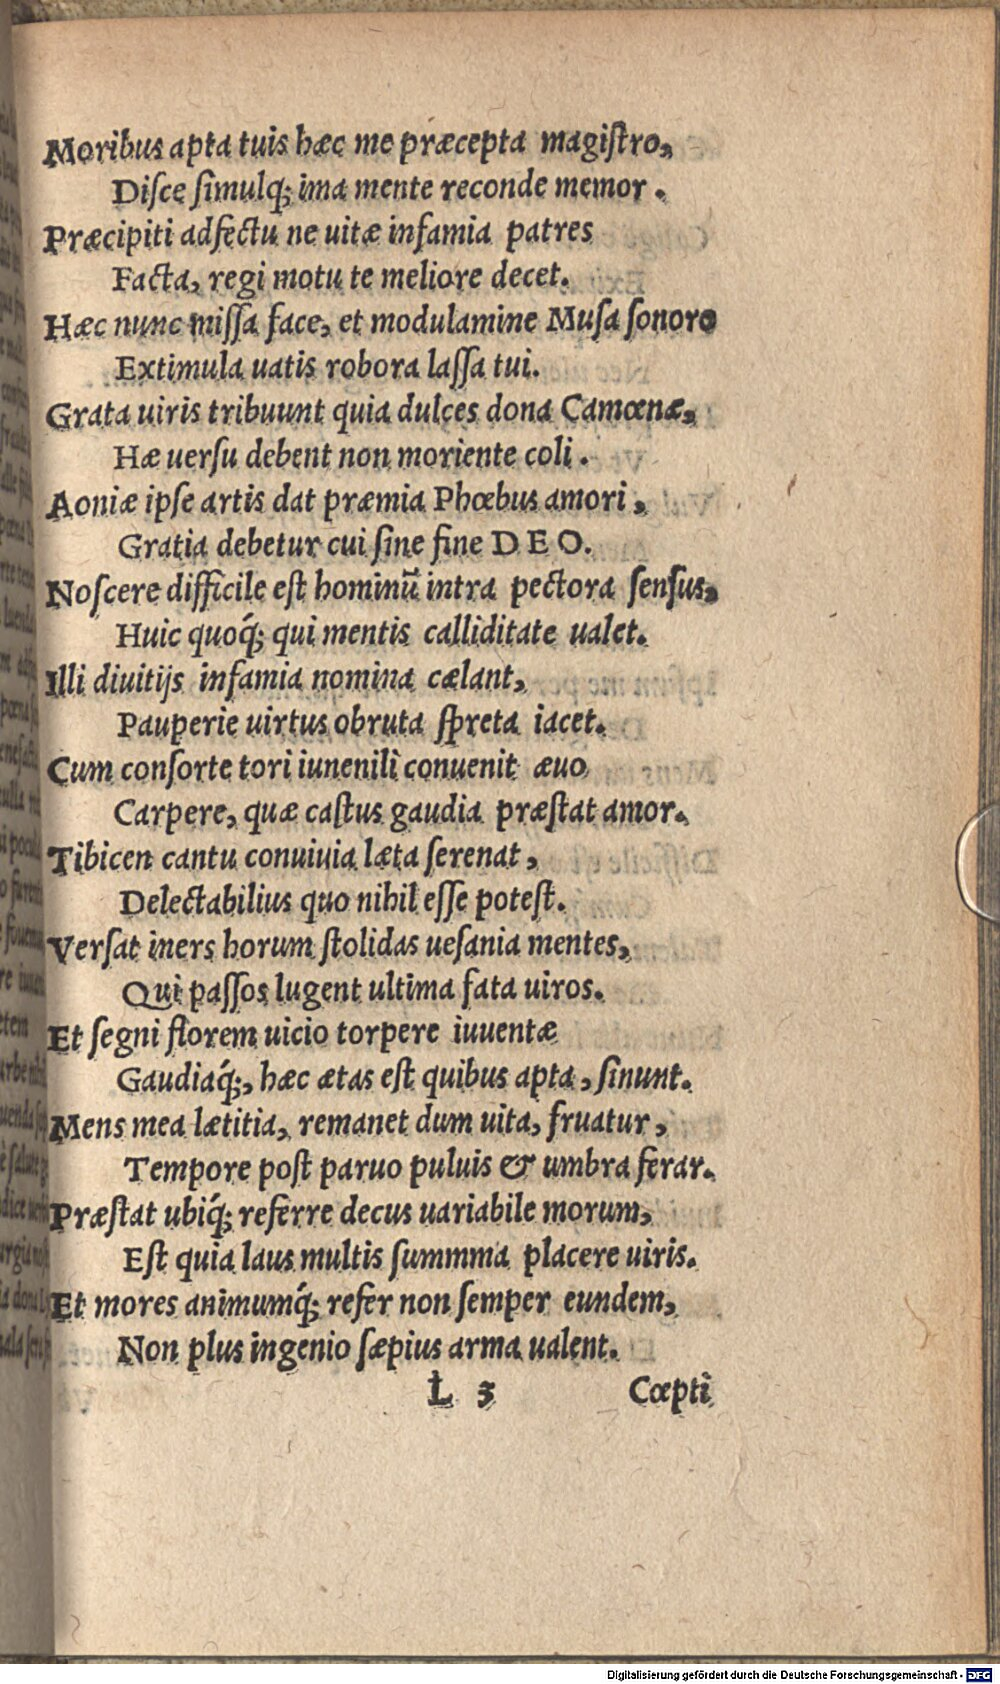 Moribus apta tuis hæc me præcepta magiſtro,
Diſce ſimulq́; ima mente reconde memor.
Præcipiti adfectu ne uitæ infamia patres
Facta, regi motu te meliore decet.
Hæc nunc miſſa face, et modulamine Muſa ſonoro
Extimula uatis robora laſſa tui.
Grata uiris tribuunt quia dulces dona Camœnæ,
Hæ uerſu debent non moriente coli.
Aoniæ ipſe artis dat præmia Phœbus amori,
Gratia debetur cui ſine fine DEO.
Noſcere difficile eſt hominū intra pectora ſenſus,
Huic quoq́; qui mentis calliditate ualet.
Illi diuitijs infamia nomina cælant,
Pauperie uirtus obruta ſpreta iacet.
Cum conſorte tori iunenili conuenit æuo
Carpere, quæ caſtus gaudia præſtat amor.
Tibicen cantu conuiuia læta ſerenat,
Delectabilius quo nihil eſſe poteſt.
Verſat iners horum ſtolidas ueſania mentes,
Qui paſſos lugent ultima fata uiros.
Et ſegni florem uicio torpere iuuentæ
Gaudiaq́;, hæc ætas eſt quibus apta, ſinunt.
Mens mea lætitia, remanet dum uita, fruatur,
Tempore poſt paruo puluis & umbra ferar.
Præſtat ubiq́; referre decus uariabile morum,
Eſt quia laus multis ſummma placere uiris.
Et mores animumq́; refer non ſemper eundem,
Non plus ingenio ſæpius arma ualent.
L 3 Cœpti
Digitalisierung gefördert durch die Deutsche Forschungsgemeinschaft - DFG